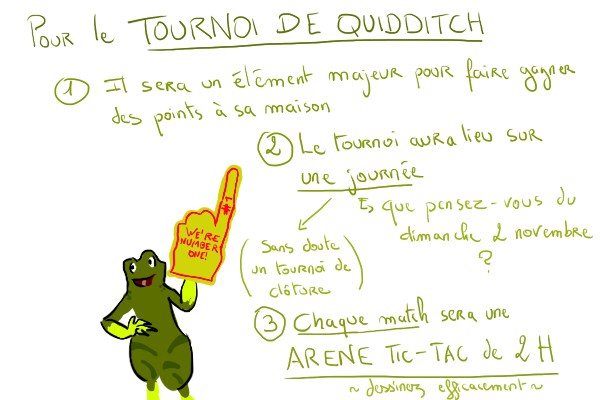 Pour le TOURNOI DE QUIDDITCH
1 Il sera un élément majeur pour faire gagner
des points à sa maison
2 Le tournoi aura lieu sur
une journée
↳ que pensez-vous du
dimanche 2 novembre
?
(Sans doute
un tournoi de
clôture)
#1
WE'RE
NUMBER
ONE!
3 Chaque match sera une
ARENE TIC-TAC de 2H
~ dessinez efficacement ~